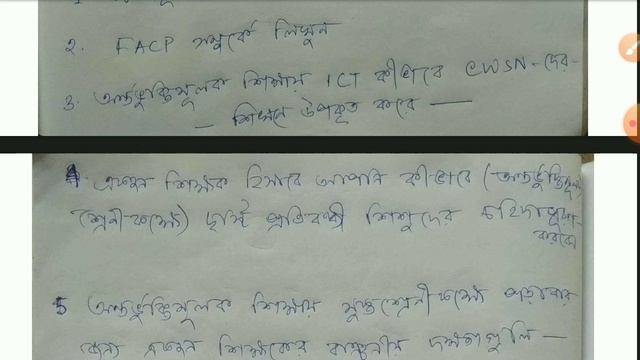 ২. FACP সম্পর্কে লিখুন
৩. অন্তর্ভুক্তিমূলক শিক্ষায় ICT কীভাবে CWSN-দের-
– শিখনে উপকৃত করে —
৪. একজন শিক্ষক হিসাবে আপনি কীভাবে (অন্তর্ভুক্তিমূলক
শ্রেনীকক্ষে) দৃষ্টি প্রতিবন্ধী শিশুদের চাহিদাপূরণ
করবেন
৫ অন্তর্ভুক্তিমূলক শিক্ষায় শ্রেনীকক্ষে পড়াবার
জন্য একজন শিক্ষকের বাঞ্ছনীয় দক্ষতাগুলি —